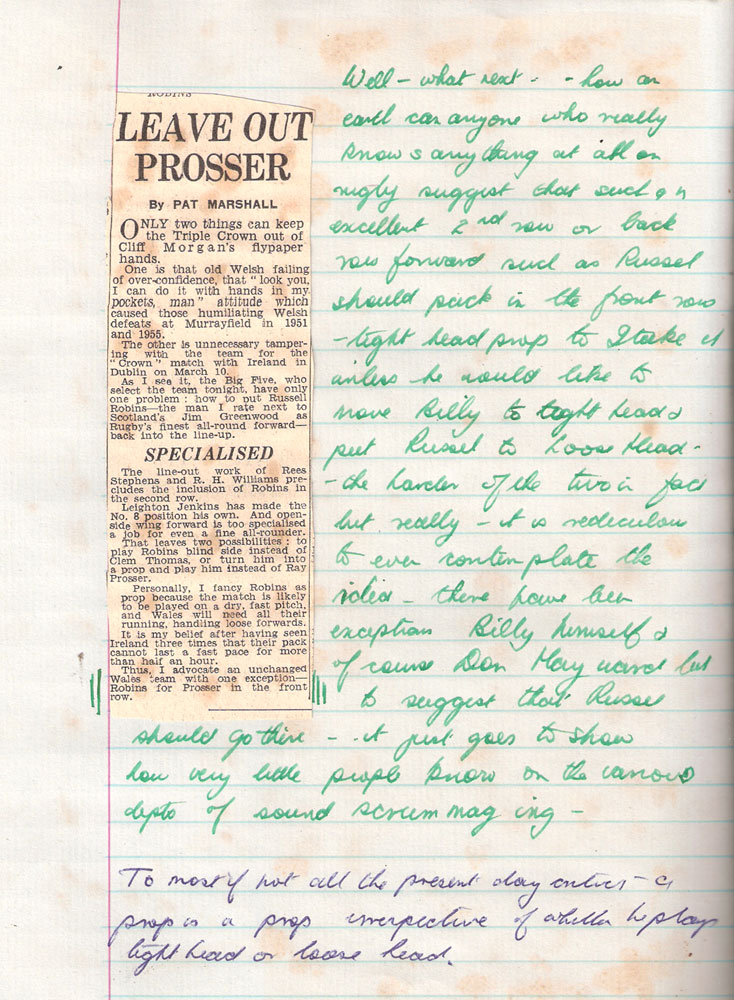 ROBINS
LEAVE OUT
PROSSER
By PAT MARSHALL
ONLY two things can keep
the Triple Crown out of
Cliff Morgan's flypaper
hands.
One is that old Welsh failing
of over-confidence, that "look you,
I can do it with hands in my
pockets, man" attitude which
caused those humiliating Welsh
defeats at Murrayfield in 1951
and 1955.
The other is unnecessary tamper-
ing with the team for the
"Crown" match with Ireland in
Dublin on March 10.
As I see it, the Big Five, who
select the team tonight, have only
one problem: how to put Russell
Robins—the man I rate next to
Scotland's Jim Greenwood as
Rugby's finest all-round forward—
back into the line-up.
SPECIALISED
The line-out work of Rees
Stephens and R. H. Williams pre-
cludes the inclusion of Robins in
the second row.
Leighton Jenkins has made the
No. 8 position his own. And open-
side wing forward is too specialised
a job for even a fine all-rounder.
That leaves two possibilities: to
play Robins blind side instead of
Clem Thomas, or turn him into
a prop and play him instead of Ray
Prosser.
Personally, I fancy Robins as
prop because the match is likely
to be played on a dry, fast pitch,
and Wales will need all their
running, handling loose forwards.
It is my belief after having seen
Ireland three times that their pack
cannot last a fast pace for more
than half an hour.
Thus, I advocate an unchanged
Wales team with one exception—
Robins for Prosser in the front
row.
Well - what next - - how on
earth can anyone who really
knows anything at all on
rugby suggest that such an
excellent 2nd row or back
row forward such as Russel
should pack in the front row
- tight head prop to I take it
unless he would like to
move Billy to tight head &
put Russel to Loose Head -
- the harder of the two in fact
but really - it is rediculous
to ever contemplate the
idea - there have been
exceptions Billy himself &
of course Don Hayward but
to suggest that Russel
should go there - it just goes to show
how very little people know on the various
depts of sound scrummaging -
To most if not all the present day critics - a
prop is a prop irrespective of whether he plays
tight head or loose head.